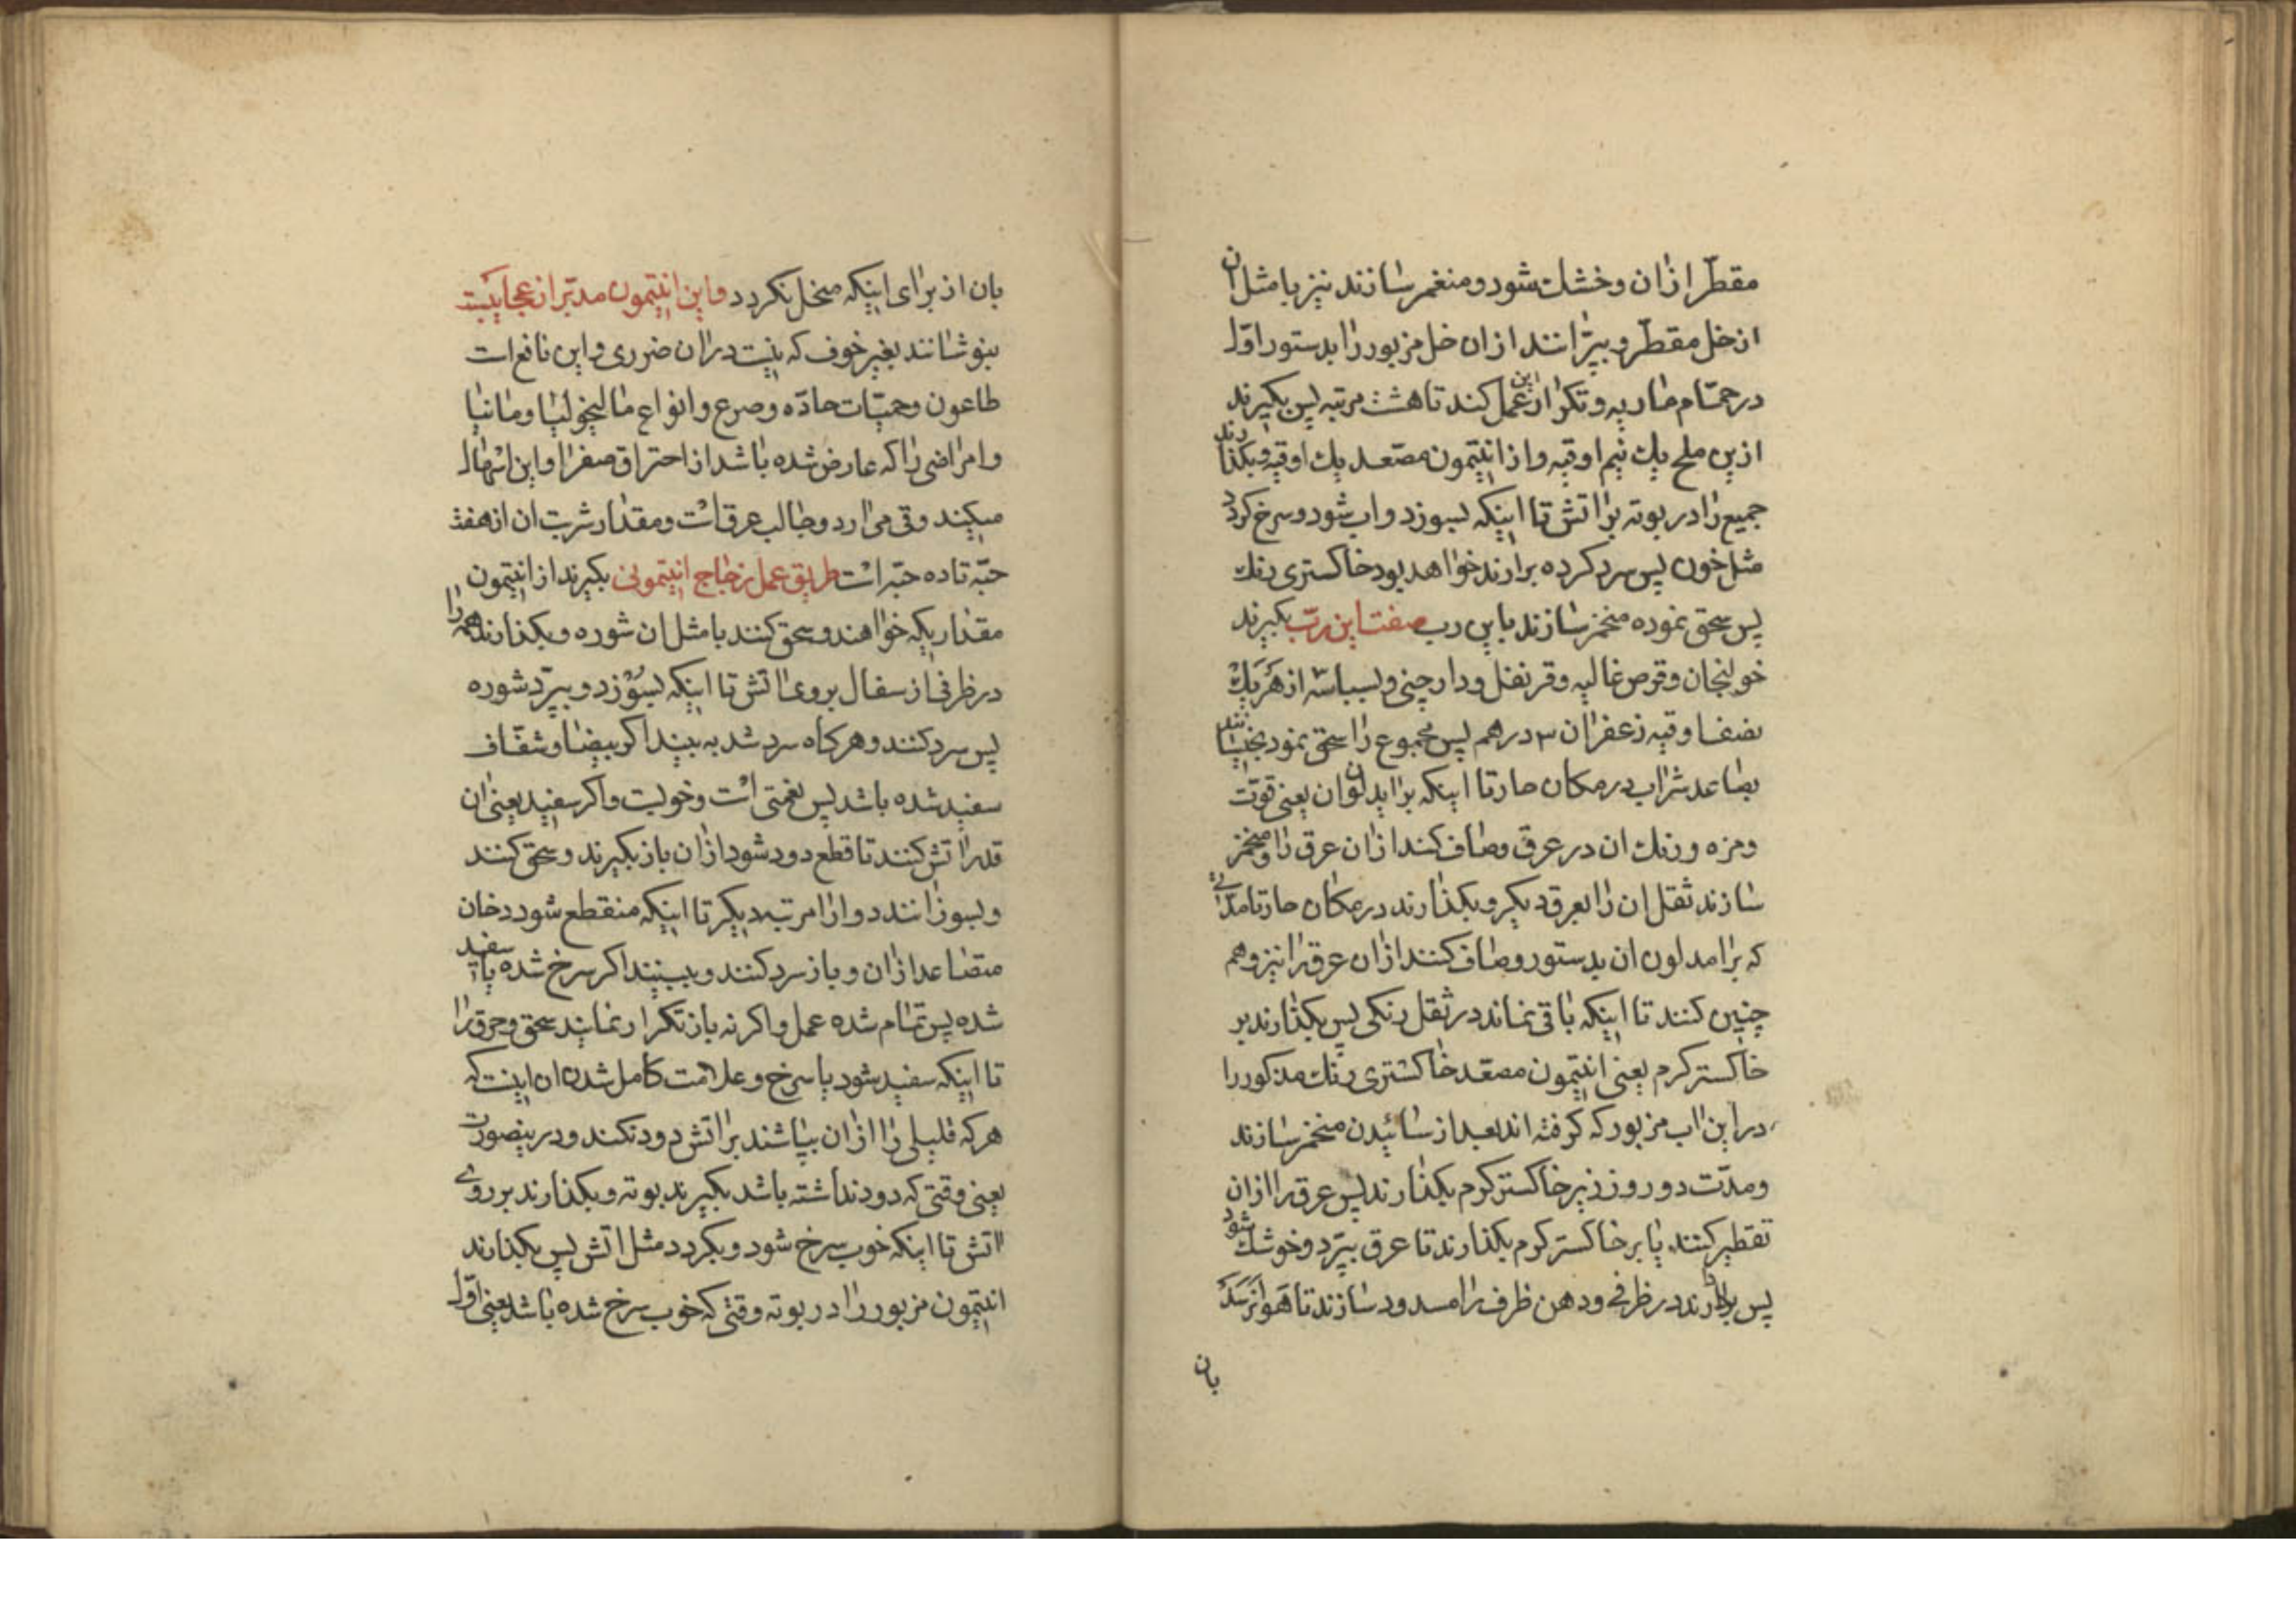 مقطّر ازان و خشك شود و منغمر سازند نیز با مثل ان
از خل مقطّر و بپرّانند ازان خل مزبور را بدستور اوّل
در حمّام ماریه و تکرار این عمل کنند تا هشت مرتبه پس بکیرند
ازین ملح یك نیم اوقیه و از انتیمون مصعد یك اوقیه و بکذارند
جمیع را در بوته بر اتش تا اینکه بسوزد و اب شود و سرخ کردد
مثل خون پس سرد کرده برارند خواهد بود خاکستری رنك
پس سحق نموده منخمر سازند باین رب صفت این ربّ بکیرند
خولنجان و قرص غالیه و قرنفل و دارچینی و بسباسه از هر یك
نصف اوقیه زعفران ۳ درهم پس مجموع را سحق نمود بخیسانند
بصاعد شراب در مکان حار تا اینکه براید لوان ان یعنی قوّت
و مزه و رنك ان در عرق و صاف کنند ازان عرق را و منخمر
سازند ثقل ان را بعرق دیکر و بکذارند در مکان حار تا مدّتی
که برامد لون ان بدستور و صاف کنند ازان عرق را نیز و هم
چنین کنند تا اینکه باقی نماند در ثقل رنکی پس بکذارند بر
خاکستر کرم یعنی انتیمون مصعّد خاکستری رنك مذکور را
در این اب مزبور که کرفته اند بعد از سائیدن منخمر سازند
و مدّت دو روز زیر خاکستر کرم بکذارند پس عرق را ازان
تقطیر کنند یا بر خاکستر کرم بکذارند تا عرق بپرّد و خوشك شود
پس بردارند در ظرفی و دهن ظرف را مسدود سازند تا هوا نرسد
بان
بان از برای اینکه منحل نکردد و این انتیمون مدبّر از عجایبست
بنوشانند بغیر خوف که نیست دران ضرری و این نافع است
طاعون و حمیّات حادّه و صرع و انواع مالیخولیا و مانیا
و امراضی را که عارض شده باشد از احتراق صفرا و این اسهال
میکند و قی می ارد و جالب عرق است و مقدار شربت ان از هفت
حبّه تا ده حبّه است طریق عمل زجاج انتیمونی بکیرند از انتیمون
مقداریکه خواهند و سحق کنند با مثل ان شوره و بکذارند همه را
در ظرفی از سفال بروی اتش تا اینکه بسوزد و بپرّد شوره
پس سرد کنند و هر کاه سرد شد به بیند اکر بیضا و شفّاف
سفید شده باشد پس نعمتی است و خوبست و اکر سفید یعنی ان
قدر اتش کنند تا قطع دود شود ازان باز بکیرند و سحق کنند
و بسوزانند دوازا مرتبه دیکر تا اینکه منقطع شود دخان
متصاعد ازان و باز سرد کنند و ببینند اکر سرخ شده یا سفید
شده پس تمام شده عمل و اکر نه باز تکرار نمایند سحق و حرق را
تا اینکه سفید شود یا سرخ و علامت کامل شدن ان اینست که
هر که قلیلی را ازان بپاشند بر اتش دود نکند و درینصورت
یعنی وقتی که دود نداشته باشد بکیرند بوته و بکذارند بر روی
اتش تا اینکه خوب سرخ شود و بکردد مثل اتش پس بکذارند
انتیمون مزبور را در بوته وقتی که خوب سرخ شده باشد یعنی اوّل